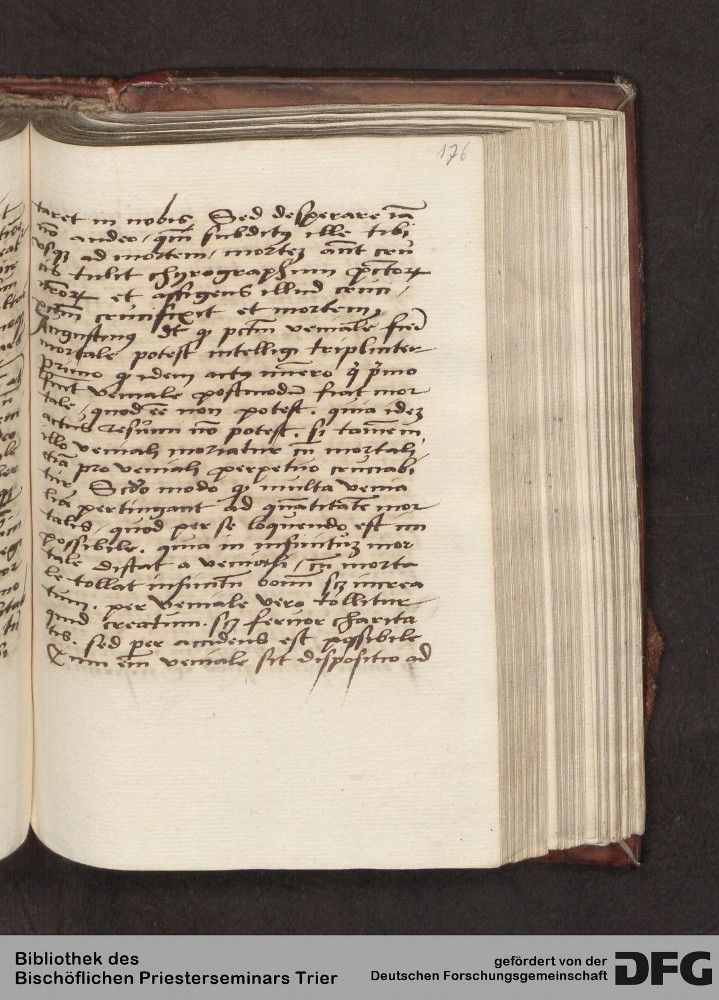 176
taret in nobis Sed desperare iā
nō audeo, qm̄ subditus ille tibi
usqȝ ad mortem, mortez aūt cru
cis tulit chyrographum
et affigens illud cruci,
pctm̄ crucifixit et mortem,
Augustinus dt q pctm̄ veniale fieri
mortale potest intelligi tripliciter
Primo q idem actus nūero q̄ p̄mo
fuit veniale postmodū fiat mor
tale, quod ēē non potest. quia idez
actus resūmi nō potest. si tamen in
illo veniali moriatur cū mortali
etiā pro veniali perpetuo cruciabi
tur Scd̄o modo q multa venia
lia pertingant ad quātitatē mor
talis, quod per se loquendo est im
possibile. quia in infinituȝ mor
tale distat a veniali, cū morta
le tollat infinitū bonū scȝ increa
tum. per veniale vero tollitur
quid creatum. scȝ fervor charita
tis. sed per accidens est possibile
Cum em̄ veniale sit dispositio ad
Bibliothek des
Bischöflichen Priesterseminars Trier
gefördert von der
Deutschen Forschungsgemeinschaft
DFG